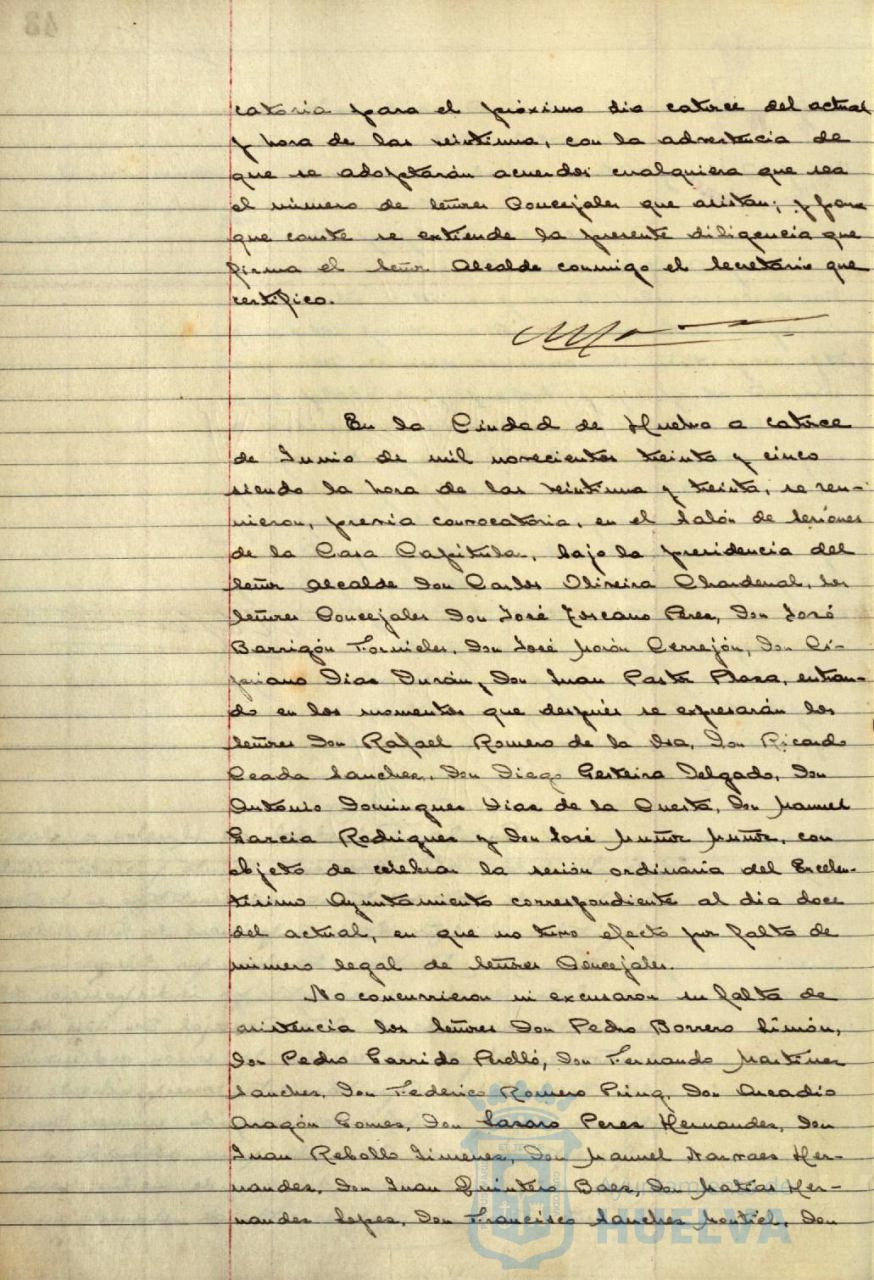 catoria para el próximo dia catorce del actual
y hora de las veintiuna, con la advertencia de
que se adoptarán acuerdos cualquiera que sea
el número de señores Concejales que asistan; y para
que conste se extiende la presente diligencia que
firma el Señor Alcalde conmigo el Secretario que
certifico.
En la Ciudad de Huelva a catorce
de Junio de mil novecientos treinta y cinco
siendo la hora de las veintiuna y treinta, se reu-
nieron, previa convocatoria, en el Salón de Sesiones
de la Casa Capitula, bajo la presidencia del
Señor Alcalde Don Carlos Oliveira Chardenal, los
Señores Concejales Don José Toscano Peres, Don José
Barrigón Fornieles, Don José Morón Cerrejón, Don Ci-
priano Dias Durán y Don Juan Pastor Plasa, entran-
do en los momentos que después se expresarán los
Señores Don Rafael Romero de la Osa, Don Ricardo
Ceada Sanches, Don Diego Gesteira Delgado, Don
Antonio Domingues Dias de la Cuesta, Don Manuel
Garcia Rodrigues y Don José Muñoz Muñoz, con
objeto de celebrar la sesión ordinaria del Excelen-
tisimo Ayuntamiento correspondiente al dia doce
del actual, en que no tuvo efecto por falta de
número legal de Señores Concejales.
No concurrieron ni excusaron su falta de
asistencia los Señores Don Pedro Borrero Limón,
Don Pedro Garrido Perelló, Don Fernando Martines
Sanches, Don Federico Romero Don Arcadio
Aragón Gomes, Don Lasaro Peres Hernandes, Don
Juan Rebollo Jimenes, Don Manuel Narvaes Her-
nandes, Don Juan Quintero Baes, Don Matías Her-
nandes Lopes, Don Francisco Sanches Montiel, Don
Ayuntamiento de
HUELVA